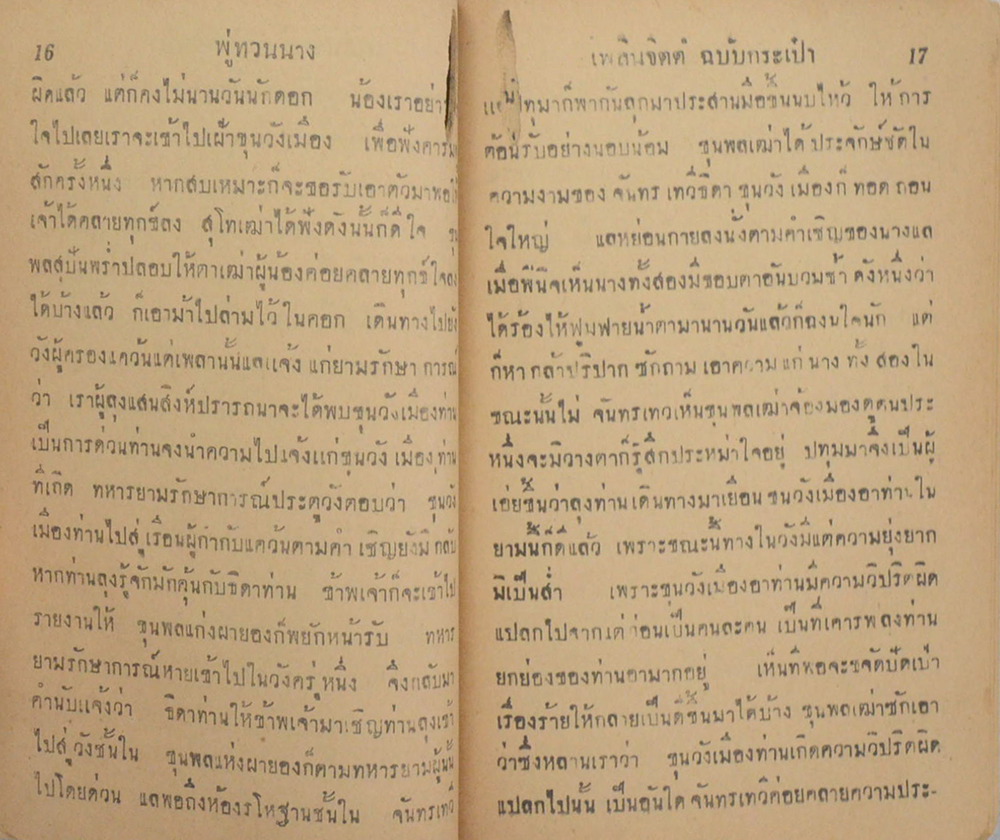 16 พู่ทวนนาง
ผิดแล้ว แต่ก็คงไม่นานวันนักดอก น้องเราอย่า
ใจไปเลยเราจะเข้าไปเฝ้าขุนวังเมือง เพื่อฟังคาร
สักครั้งหนึ่ง หากสบเหมาะก็จะขอรับเอาตัวมาพอ
เจ้าได้คลายทุกข์ลง สุโทเฒ่าได้ฟังดังนั้นก็ดีใจ ขุน
พลสุบั่นพร่ำปลอบให้ตาเฒ่าผู้น้องค่อยคลายทุกข์ใจลง
ได้บ้างแล้ว ก็เอาม้าไปล่ามไว้ในคอก เดินทางไปยัง
วังผู้ครองแคว้นแต่เพลานั้นแลแจ้ง แก่ยามรักษา การณ์
ว่า เราผู้ลุงแสนสิงห์ปรารถนาจะได้พบขุนวังเมืองท่าน
เป็นการด่วนท่านจงนำความไปแจ้งแก่ขุนวัง เมืองท่าน
ที่เถิด ทหารยามรักษาการณ์ประตูวังตอบว่า ขุนวัง
เมืองท่านไปสู่เรือนผู้กำกับแคว้นตามคำ เชิญยังมิกลับ
หากท่านลุงรู้จักมักคุ้นกับธิดาท่าน ข้าพเจ้าก็จะเข้าไป
รายงานให้ ขุนพลแก่งผายองก็พยักหน้ารับ ทหาร
ยามรักษาการณ์หายเข้าไปในวังครู่หนึ่ง จึงกลับมา
คำนับแจ้งว่า ธิดาท่านให้ข้าพเจ้ามาเชิญท่านลุงเข้า
ไปสู่วังชั้นใน ขุนพลแห่งผายองก็ตามทหารยามผู้นั้น
ไปโดยด่วน แลพอถึงห้องรโหฐานชั้นใน จันทรเทวี
เพลินจิตต์ ฉบับกระเป๋า 17
ปทุมาก็พากันลุกมาประสานมือขึ้นนบไหว้ ให้การ
ต้อนรับอย่างนอบน้อม ขุนพลเฒ่าได้ประจักษ์ชัดใน
ความงามของ จันทร เทวีธิดา ขุนวัง เมืองก็ ทอด ถอน
ใจใหญ่ แลหย่อนกายลงนั่งตามคำเชิญของนางแล
เมื่อพินิจเห็นนางทั้งสองมีขอบตาอันบวมช้ำ ดังหนึ่งว่า
ได้ร้องไห้ฟูมฟายน้ำตามานานวันแล้วก็ฉงนใจนัก แต่
ก็หา กล้าปริปาก ซักถาม เอาความ แก่ นาง ทั้ง สองใน
ขณะนั้นไม่ จันทรเทวเห็นขุนพลเฒ่าจ้องมองดูตนประ
หนึ่งจะมิวางตาก็รู้สึกประหม่าใจอยู่ ปทุมมาจึงเป็นผู้
เอ่ยขึ้นว่าลุงท่านเดินทางมาเยือนขุนวังเมืองอาท่านใน
ยามนี้ก็ดีแล้ว เพราะขณะนี้ทางในวังมีแต่ความยุ่งยาก
มิเป็นส่ำ เพราะขุนวังเมืองอาท่านมีความวิปริตผิด
แปลกไปจากแต่ก่อนเป็นคนละคน เป็นที่เคารพลงท่าน
ยกย่องของท่านอามากอยู่ เห็นทีพอจะขจัดปัดเป่า
เรื่องร้ายให้กลายเป็นดีขึ้นมาได้บ้าง ขุนพลเฒ่าซักเอา
ว่าซึ่งหลานเราว่า ขุนวังเมืองท่านเกิดความวิปริตผิด
แปลกไปนั้น เป็นฉันใด จันทรเทวีค่อยคลายความประ-